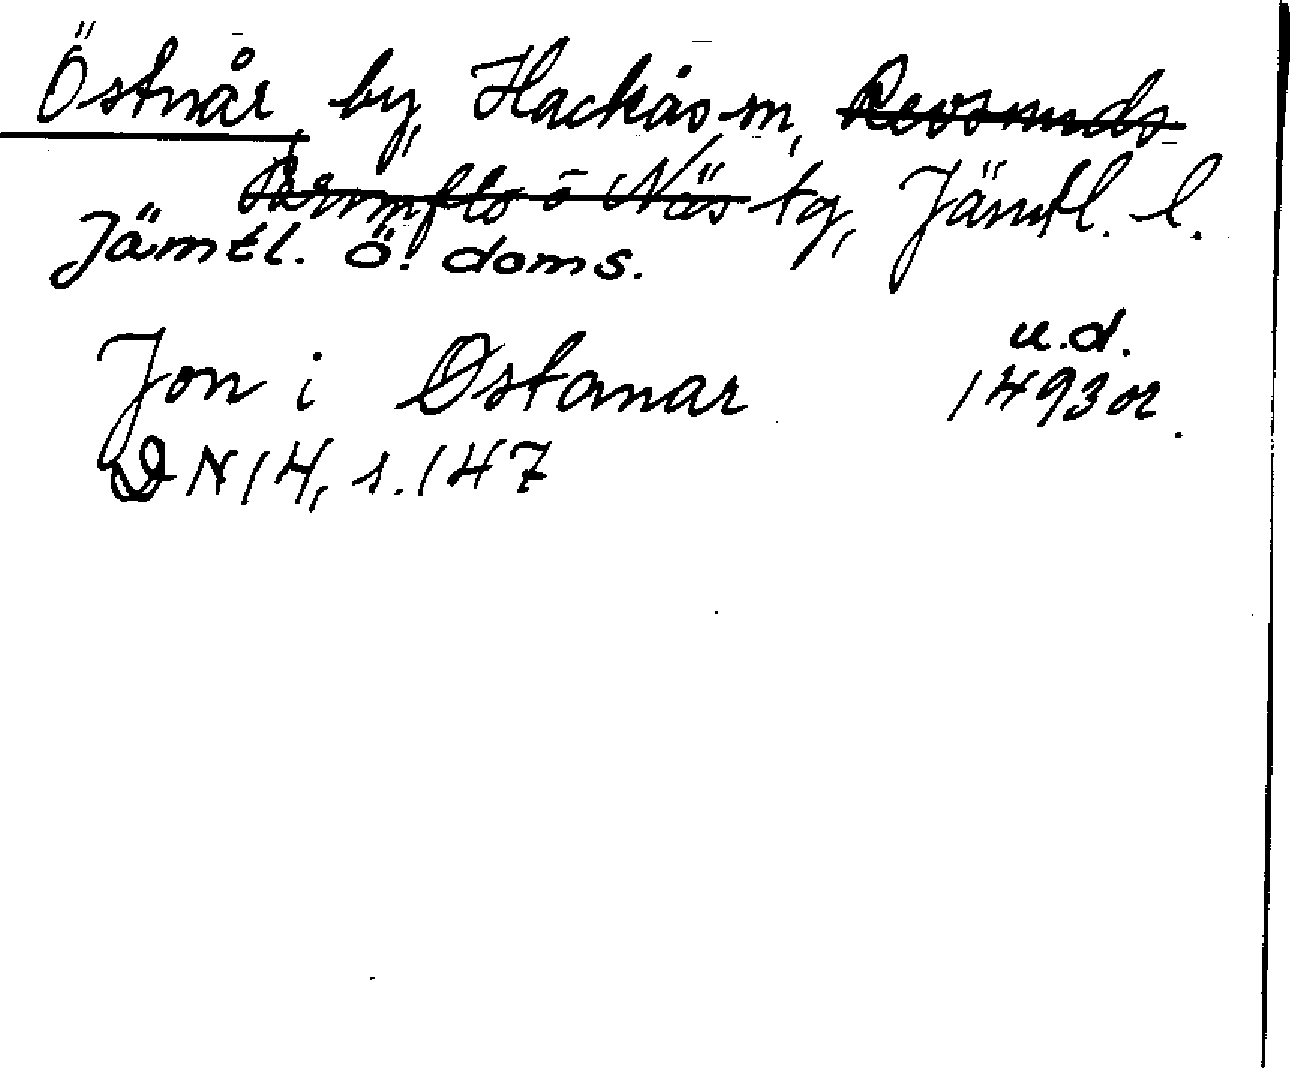 Östnår, by, Hackås sn, Revsunds
Brunflo o Näs tg, Jämtl. l.
Jämtl. ö. doms.
Jon i Østanar u.d. 1493 or.
DN 14, s. 147